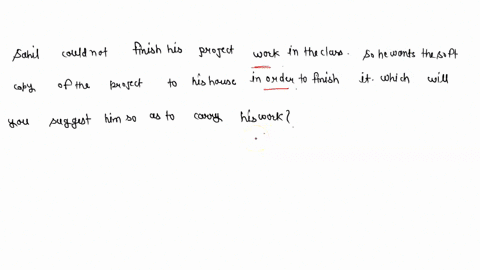 Sahil could not finish his project work in the class. So he wants the soft
copy of the project to his house in order to finish it. which will
you suggest him so as to carry his work?